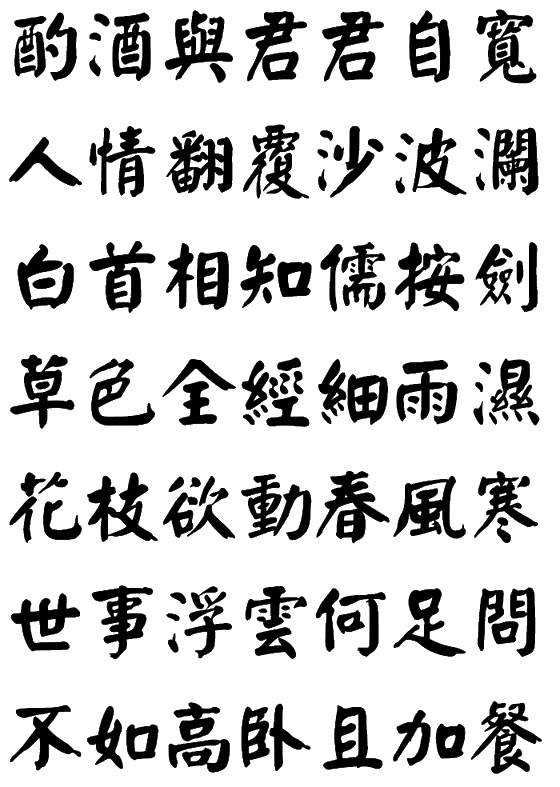 酌酒與君君自寬
人情翻覆沙波瀾
白首相知儒按劍
草色全經細雨濕
花枝欲動春風寒
世事浮雲何足問
不如高臥且加餐